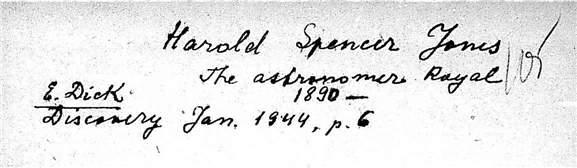 Harold Spencer Jones
The astronomer Royal
1890 —
E. Dick
Discovery Jan. 1944, p. 6